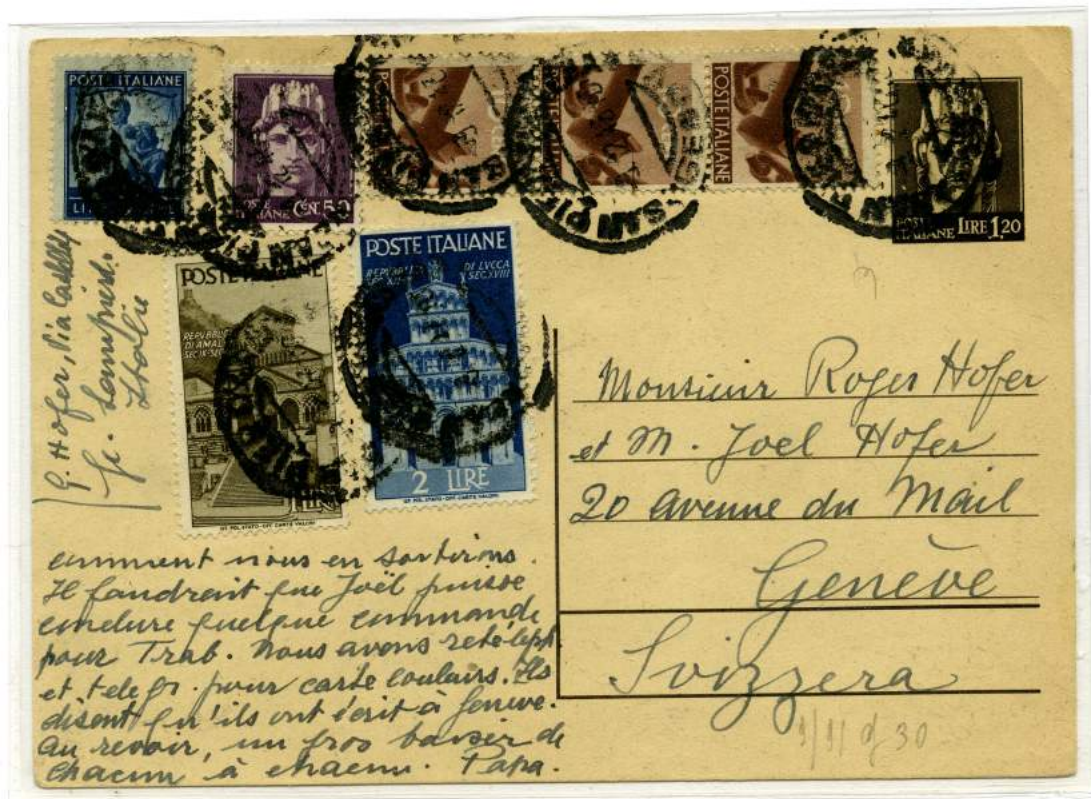 POSTE ITALIANE
POSTE ITALIANE CENT. 50
POSTE ITALIANE
POSTE ITALIANE LIRE 1,20
POSTE ITALIANE
REPUBBLICA DI AMALFI
POSTE ITALIANE
REPUBBLICA DI LUCCA
SEC XII- SEC XVIII
2 LIRE
IST. POL. STATO-OFF. CARTE VALORI
IST. POL. STATO-OFF. CARTE VALORI
G. Hofer, Via
Italie
Monsieur Roger Hofer
et M. Joel Hofer
20 avenue du Mail
Genève
Svizzera
comment nous en sortirons.
Il faudrait que Joël puisse
conclure quelque commande
pour Trab. Nous avons
et telegr. pour carte couleurs. Ils
disent qu'ils ont écrit à Genève.
au revoir, un gros baiser de
chacun à chacun. Papa.